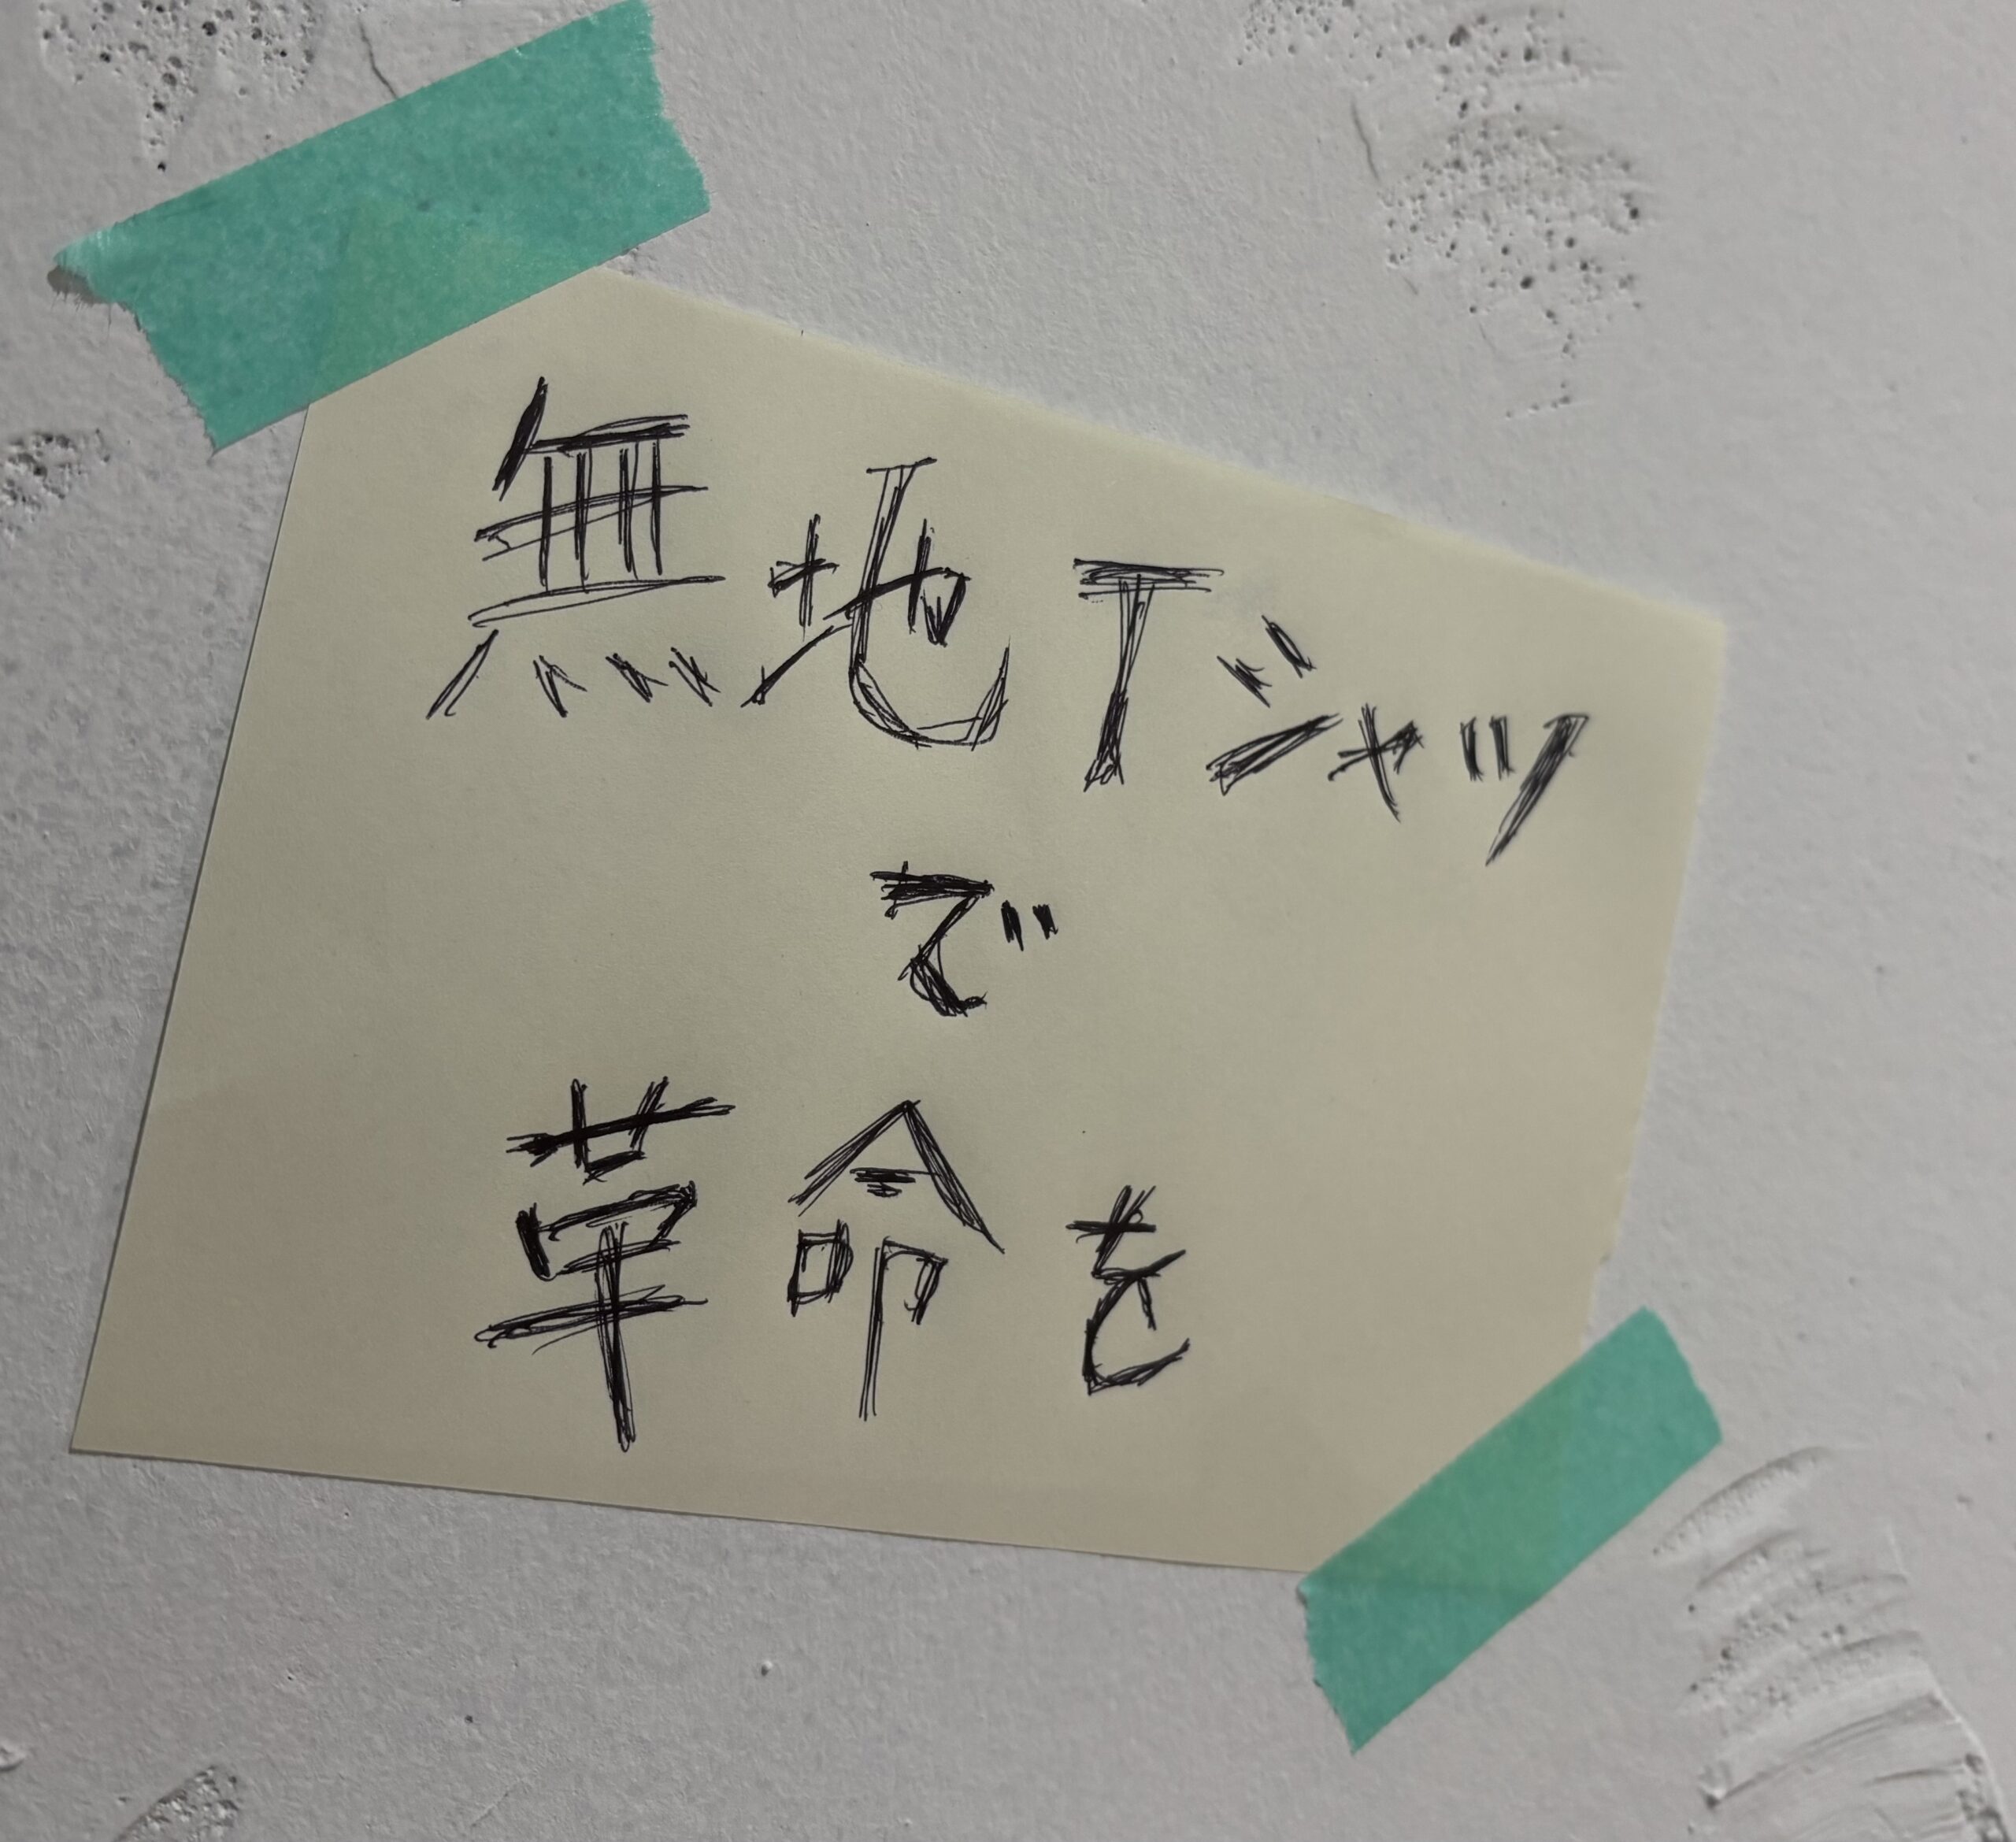 無地Tシャツ
で
革命を